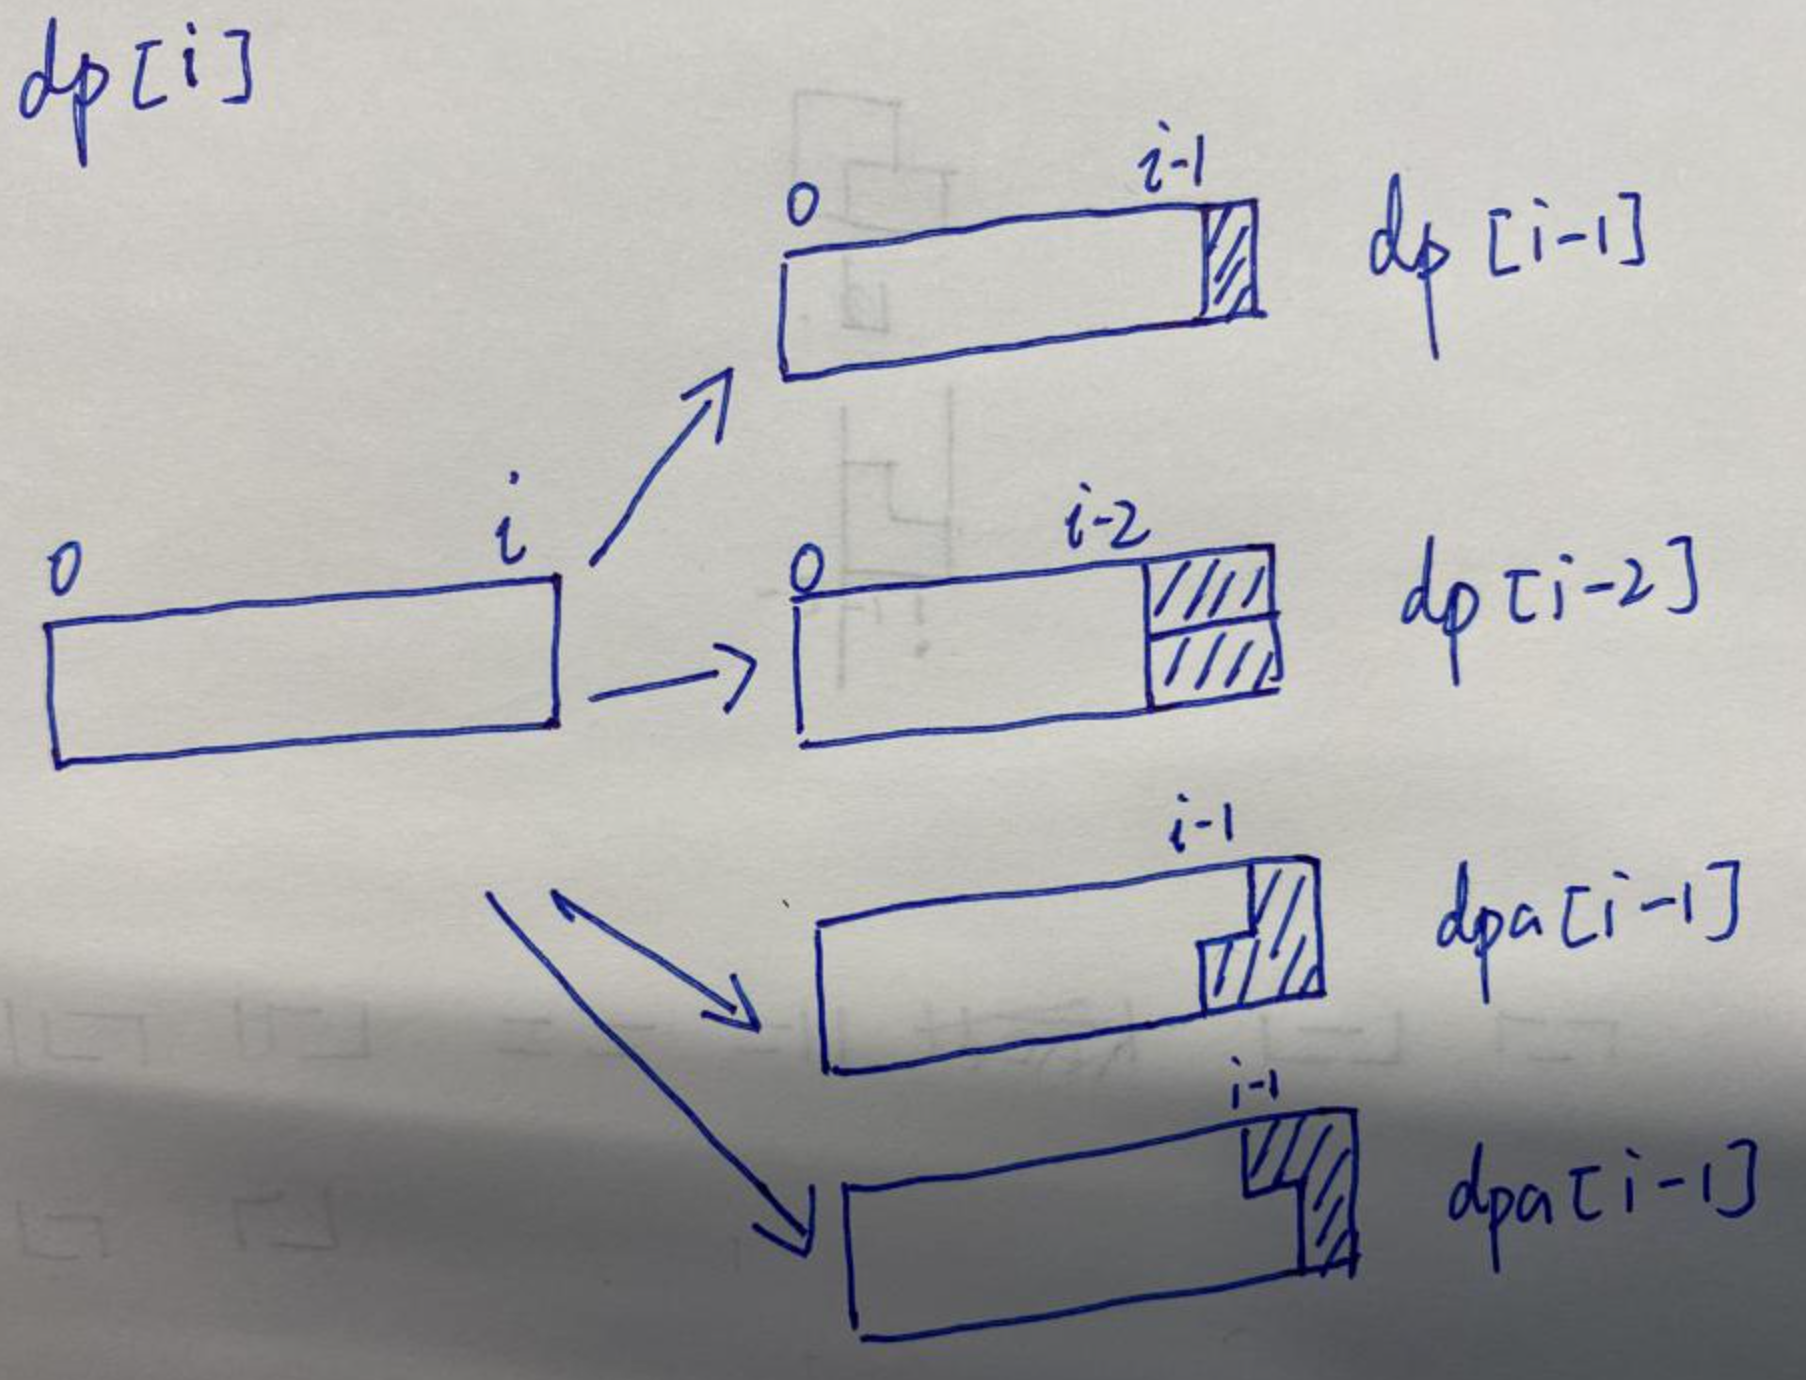 dp[i]
0 i-1 dp[i-1]
0 i
0 i-2 dp[i-2]
i-1 dpa[i-1]
i-1 dpa[i-1]